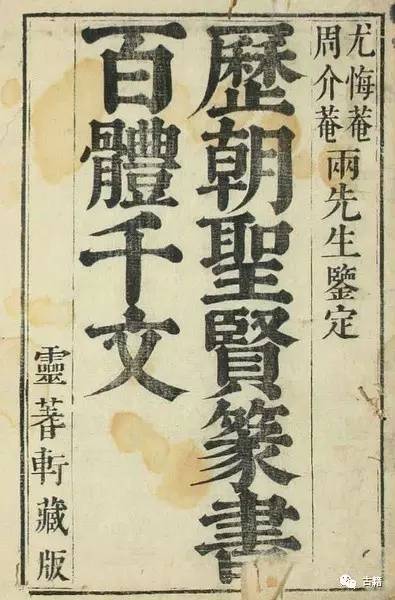 尤悔菴
周介菴
兩先生鑒定
歷朝聖賢篆書
百體千文
靈蓍軒藏版
古籍